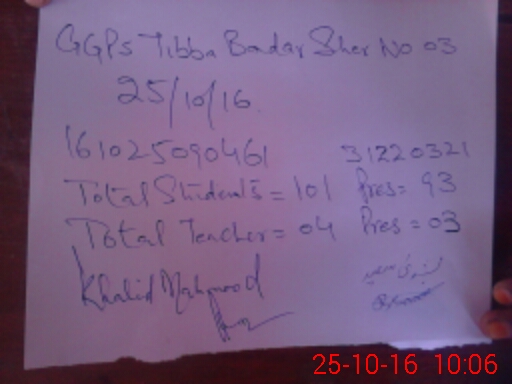 GGPS Tibba Badar Sher No 03
25/10/16.
161025090461 31220321
Total Students = 101 Pres = 93
Total Teacher = 04 Pres = 03
Khalid Mahmood
25-10-16 10:06